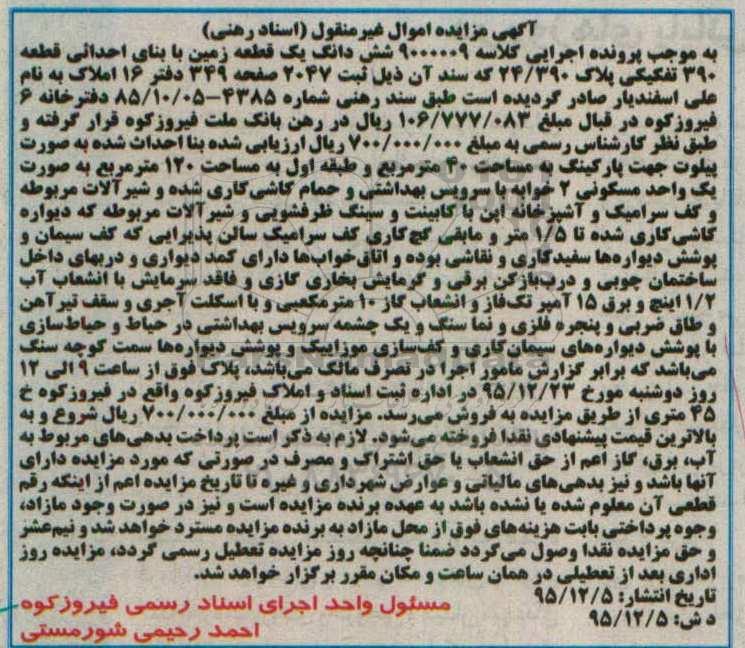 آگهی مزایده اموال غیرمنقول (اسناد رهنی)
به موجب پرونده اجرایی کلاسه ۹۰۰۰۰۰۹ شش دانگ یک قطعه زمین با بنای احداثی قطعه
۳۹۰ تفکیکی پلاک ۲۴/۳۹۰ که سند آن ذیل ثبت ۲۰۴۷ صفحه ۳۴۹ دفتر ۱۶ املاک به نام
علی اسفندیار صادر گردیده است طبق سند رهنی شماره ۴۳۸۵-۸۵/۱۰/۰۵ دفترخانه ۶
فیروزکوه در قبال مبلغ ۱۰۶/۷۷۷/۰۸۳ ریال در رهن بانک ملت فیروزکوه قرار گرفته و
طبق نظر کارشناس رسمی به مبلغ ۷۰۰/۰۰۰/۰۰۰ ریال ارزیابی شده بنا احداث شده به صورت
پیلوت جهت پارکینگ به مساحت ۴۰ مترمربع و طبقه اول به مساحت ۱۲۰ مترمربع به صورت
یک واحد مسکونی ۲ خوابه با سرویس بهداشتی و حمام کاشی‌کاری شده و شیرآلات مربوطه
و کف سرامیک و آشپزخانه اپن با کابینت و سینگ ظرفشویی و شیرآلات مربوطه که دیواره
کاشی‌کاری شده تا ۱/۵ متر و مابقی گچ‌کاری کف سرامیک سالن پذیرایی که کف سیمان و
پوشش دیواره‌ها سفیدکاری و نقاشی بوده و اتاق‌خواب‌ها دارای کمد دیواری و دربهای داخل
ساختمان چوبی و درب‌بازکن برقی و گرمایش بخاری گازی و فاقد سرمایش با انشعاب آب
۱/۲ اینچ و برق ۱۵ آمپر تک‌فاز و انشعاب گاز ۱۰ مترمکعبی و با اسکلت آجری و سقف تیرآهن
و طاق ضربی و پنجره فلزی و نما سنگ و یک چشمه سرویس بهداشتی در حیاط و حیاط‌سازی
با پوشش دیواره‌های سیمان‌کاری و کف‌سازی موزاییک و پوشش دیواره‌ها سمت کوچه سنگ
می‌باشد که برابر گزارش مامور اجرا در تصرف مالک می‌باشد، پلاک فوق از ساعت ۹ الی ۱۲
روز دوشنبه مورخ ۹۵/۱۲/۲۳ در اداره ثبت اسناد و املاک فیروزکوه واقع در فیروزکوه خ
۴۵ متری از طریق مزایده به فروش می‌رسد. مزایده از مبلغ ۷۰۰/۰۰۰/۰۰۰ ریال شروع و به
بالاترین قیمت پیشنهادی نقدا فروخته می‌شود. لازم به ذکر است پرداخت بدهی‌های مربوط به
آب، برق، گاز اعم از حق انشعاب یا حق اشتراک و مصرف در صورتی که مورد مزایده دارای
آنها باشد و نیز بدهی‌های مالیاتی و عوارض شهرداری و غیره تا تاریخ مزایده اعم از اینکه رقم
قطعی آن معلوم شده یا نشده باشد به عهده برنده مزایده است و نیز در صورت وجود مازاد،
وجوه پرداختی بابت هزینه‌های فوق از محل مازاد به برنده مزایده مسترد خواهد شد و نیم‌عشر
و حق مزایده نقدا وصول می‌گردد ضمنا چنانچه روز مزایده تعطیل رسمی گردد، مزایده روز
اداری بعد از تعطیلی در همان ساعت و مکان مقرر برگزار خواهد شد.
تاریخ انتشار: ۹۵/۱۲/۵
د ش: ۹۵/۱۲/۵
مسئول واحد اجرای اسناد رسمی فیروزکوه
احمد رحیمی شورمستی